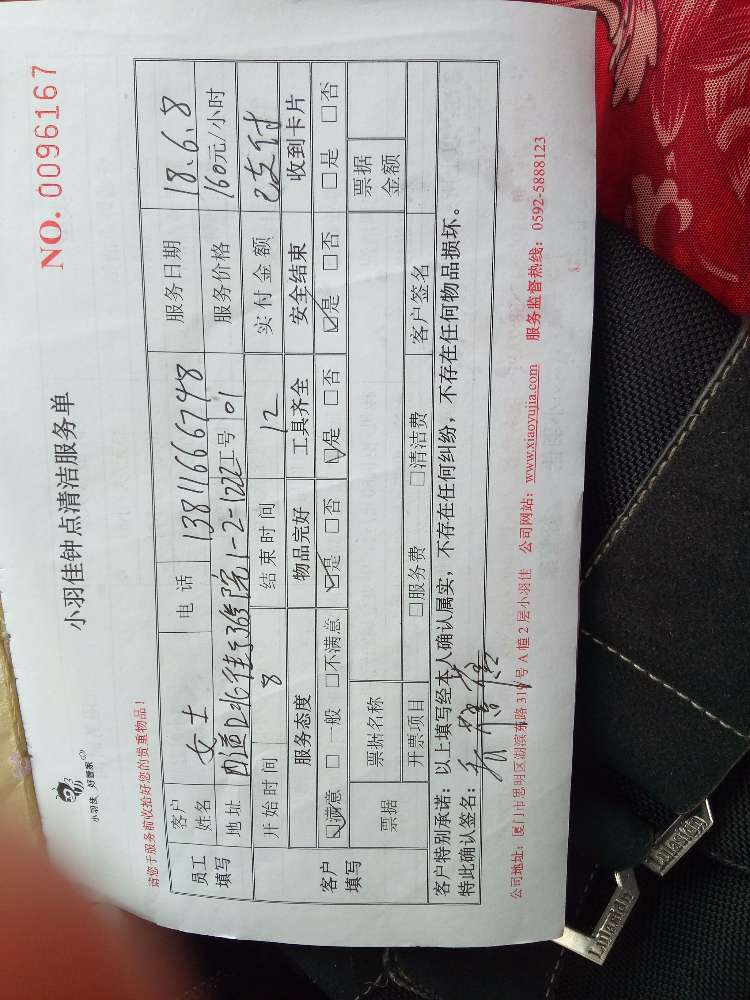 小羽佳 好管家
小羽佳钟点清洁服务单
NO. 0096167
请您于服务前收拾好您的贵重物品！
员工填写
客户姓名 女士 电话 13811666748 服务日期 18.6.8
地址 1-2-1222 工号 01 服务价格 160元/小时
开始时间 8 结束时间 12 实付金额 已支付
客户填写
服务态度 物品完好 工具齐全 安全结束 收到卡片
☑满意 □一般 □不满意 ☑是 □否 ☑是 □否 ☑是 □否 □是 □否
票据 票据名称 票据金额
开票项目 □服务费 □清洁费 客户签名
客户特别承诺：以上填写经本人确认属实，不存在任何纠纷，不存在任何物品损坏。
特此确认签名：
公司地址：厦门市思明区湖滨东路319号A幢2层小羽佳 公司网站：www.xiaoyujia.com 服务监督热线：0592-5888123
Lulanidy
Lulanidy